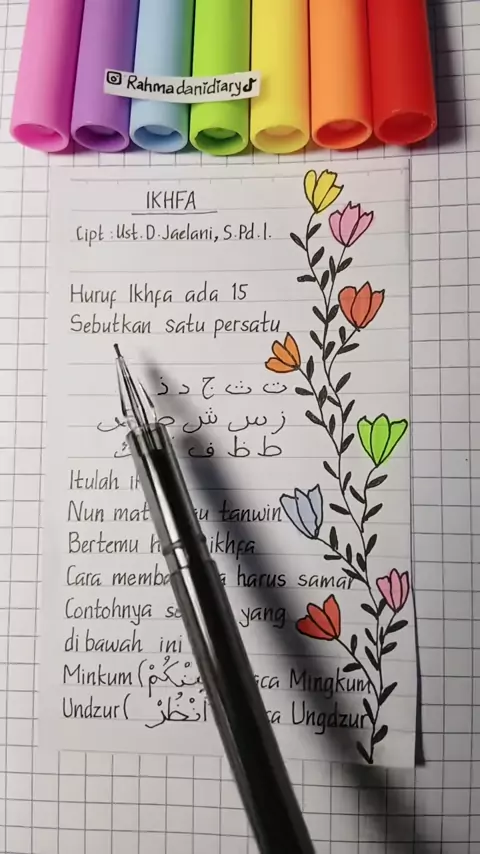 Rahmadanidiary
IKHFA
Cipt : Ust. D. Jaelani, S.Pd.I.
Huruf Ikhfa ada 15
Sebutkan satu persatu
ت ث ج د ذ
ز س ش
ط ظ ف
Itulah
Nun tanwin
Bertemu ikhfa
Cara harus samar
Contohnya yang
di bawah ini
Minkum ( Mingkum
Undzur ( اُنْظُرْ Ungdzur